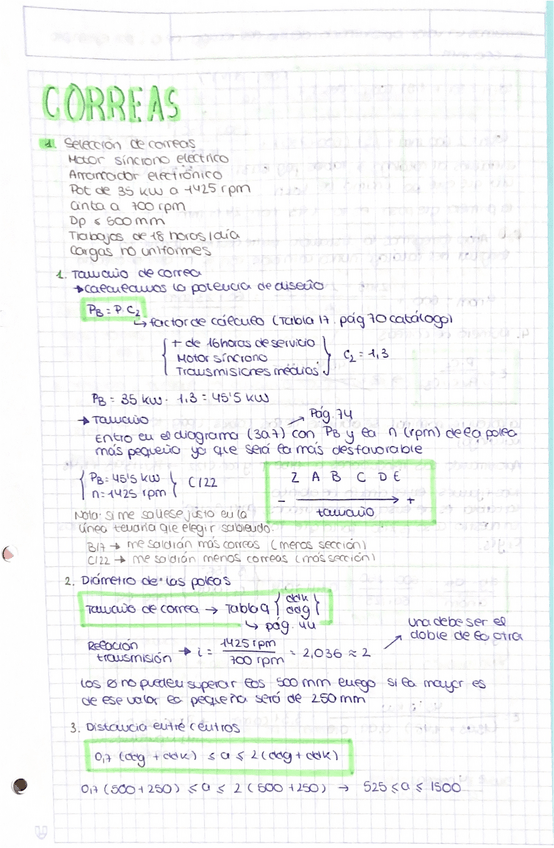 CORREAS
1. Selección de correas
Motor síncrono eléctrico
Arrancador electrónico
Pot de 35 kW a 1425 rpm
Cinta a 700 rpm
Dp ≤ 500 mm
Trabajos de 18 horas/día
Cargas no uniformes
1. Tamaño de correa
→ Calculamos la potencia de diseño
PB = P · C2
↳ factor de cálculo (Tabla 17. pág 70 catálogo)
+ de 16 horas de servicio
Motor síncrono
Transmisiones medias
C2 = 1,3
PB = 35 kW · 1,3 = 45'5 kW
→ Tamaño → Pág. 74
Entro en el diagrama (30.7) con PB y la n (rpm) de la polea
más pequeña ya que será la más desfavorable
PB = 45'5 kW
n = 1425 rpm
C/22
Z A B C D E
- → +
tamaño
Nota: si me saliese justo en la
línea tendría que elegir sabiendo:
B/17 → me saldrán más correas (menos sección)
C/22 → me saldrán menos correas (más sección)
2. Diámetro de las poleas
Tamaño de correa → Tabla 9 { ddk ddg
↳ pág. 44
Relación transmisión → i = 1425 rpm / 700 rpm = 2,036 ≈ 2
una debe ser el doble de la otra
Los Ø no pueden superar los 500 mm luego si la mayor es
de ese valor la pequeña será de 250 mm
3. Distancia entre centros
0,7 (ddg + ddk) ≤ a ≤ 2 (ddg + ddk)
0,7 (500 + 250) ≤ a ≤ 2 (500 + 250) → 525 ≤ a ≤ 1500